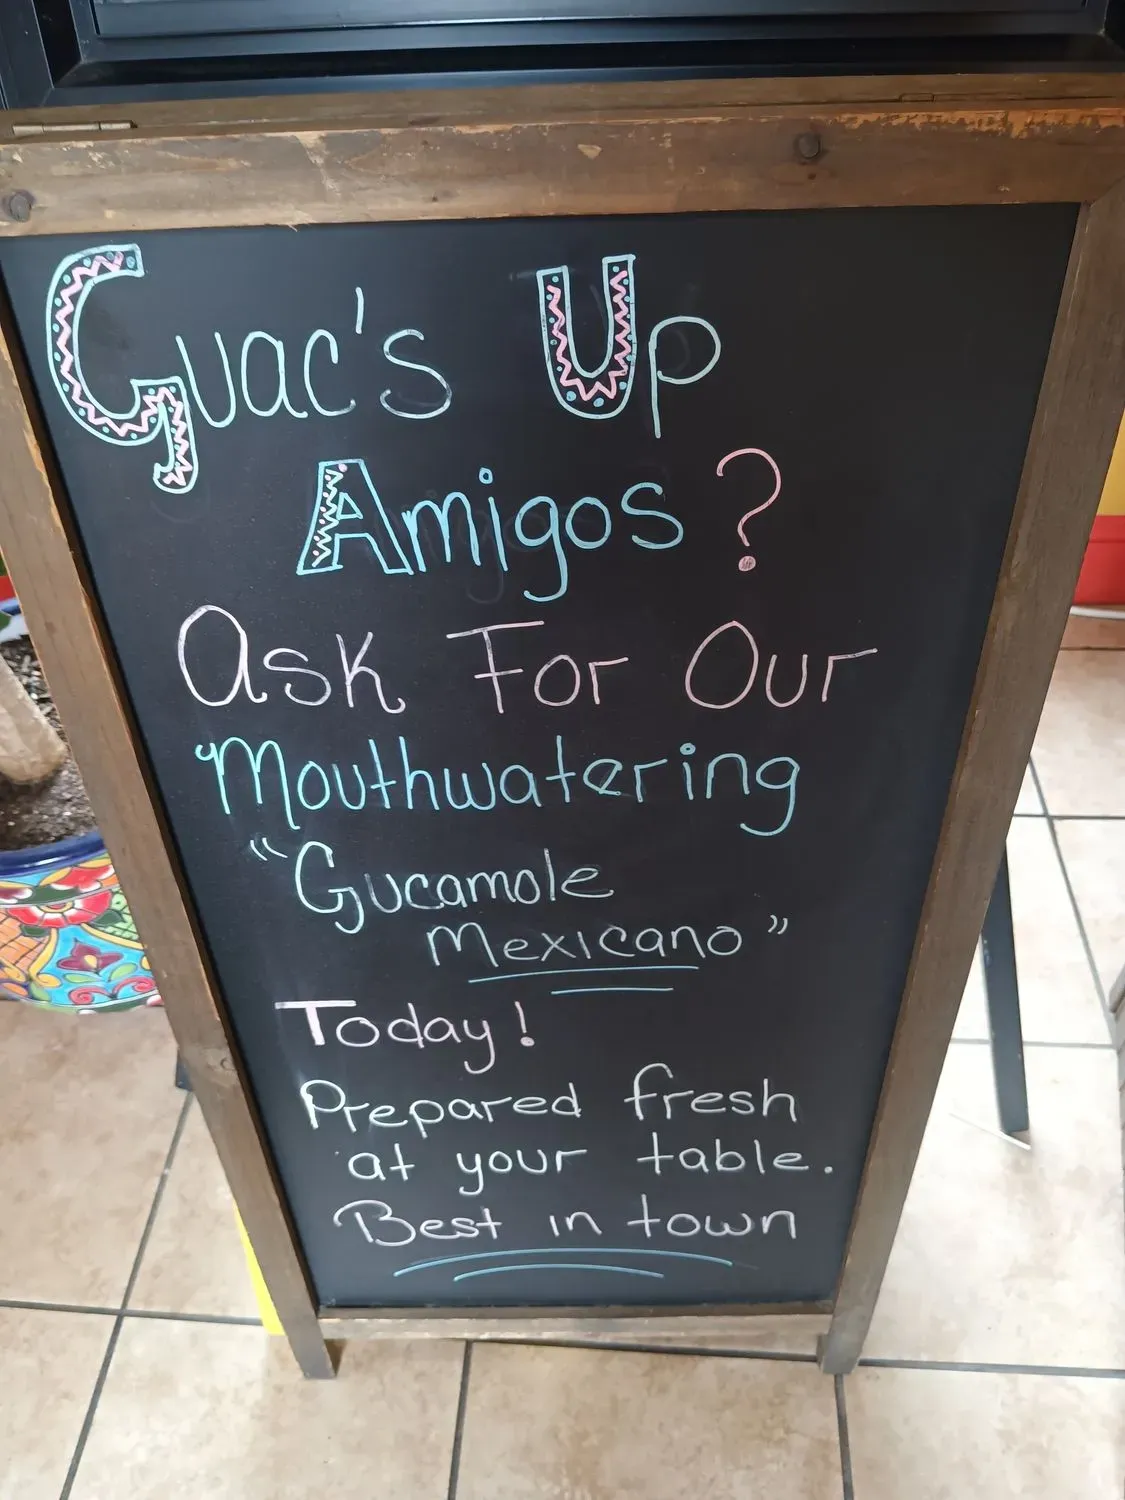 Guac's Up
Amigos?
Ask For Our
Mouthwatering
"Gucamole
Mexicano"
Today!
Prepared fresh
at your table.
Best in town